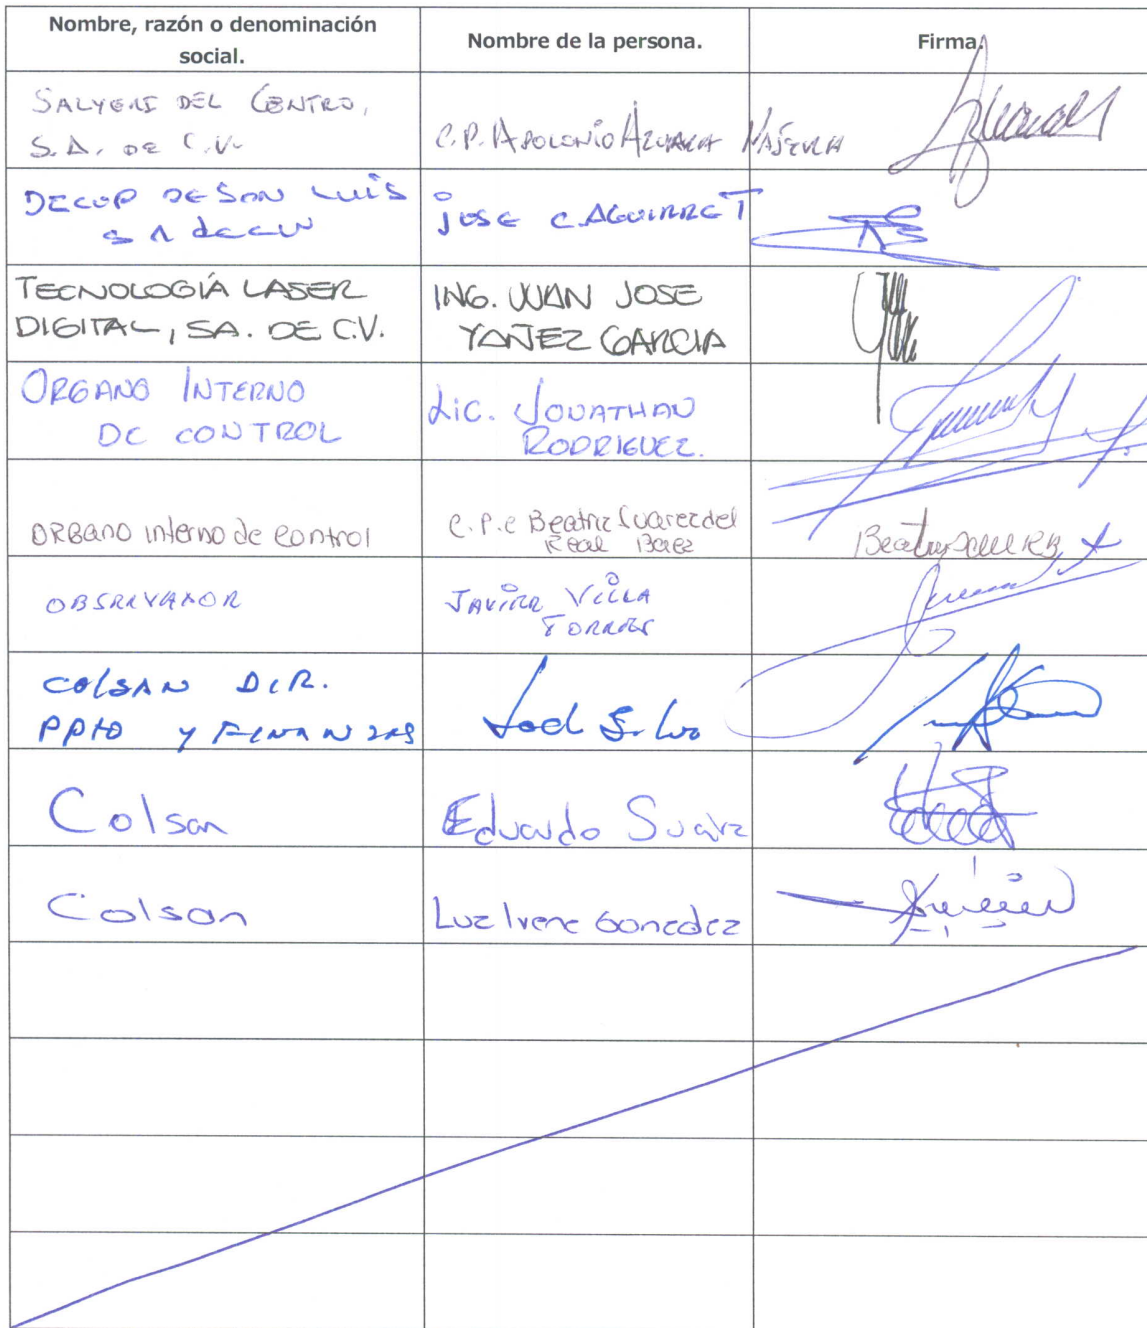 Nombre, razón o denominación
social.
Nombre de la persona.
Firma.
SALYERI DEL CENTRO,
S.A. DE C.V.
C.P. APOLONIO AZUARA NAJERA
DECOP DE SAN LUIS
S A de CV
JOSE C AGUIRRE T
TECNOLOGÍA LASER
DIGITAL, SA. DE C.V.
ING. JUAN JOSE
YAÑEZ GARCIA
ORGANO INTERNO
DE CONTROL
Lic. JONATHAN
RODRIGUEZ.
ORGANO interno de control
C.P.C Beatriz Suarez del
Real Baez
OBSERVADOR
JAVIER VILLA
TORRES
COLSAN DIR.
PPTO Y FINANZAS
Joel Silva
Colsan
Eduardo Suarez
Colsan
Luz Irene Gonzalez